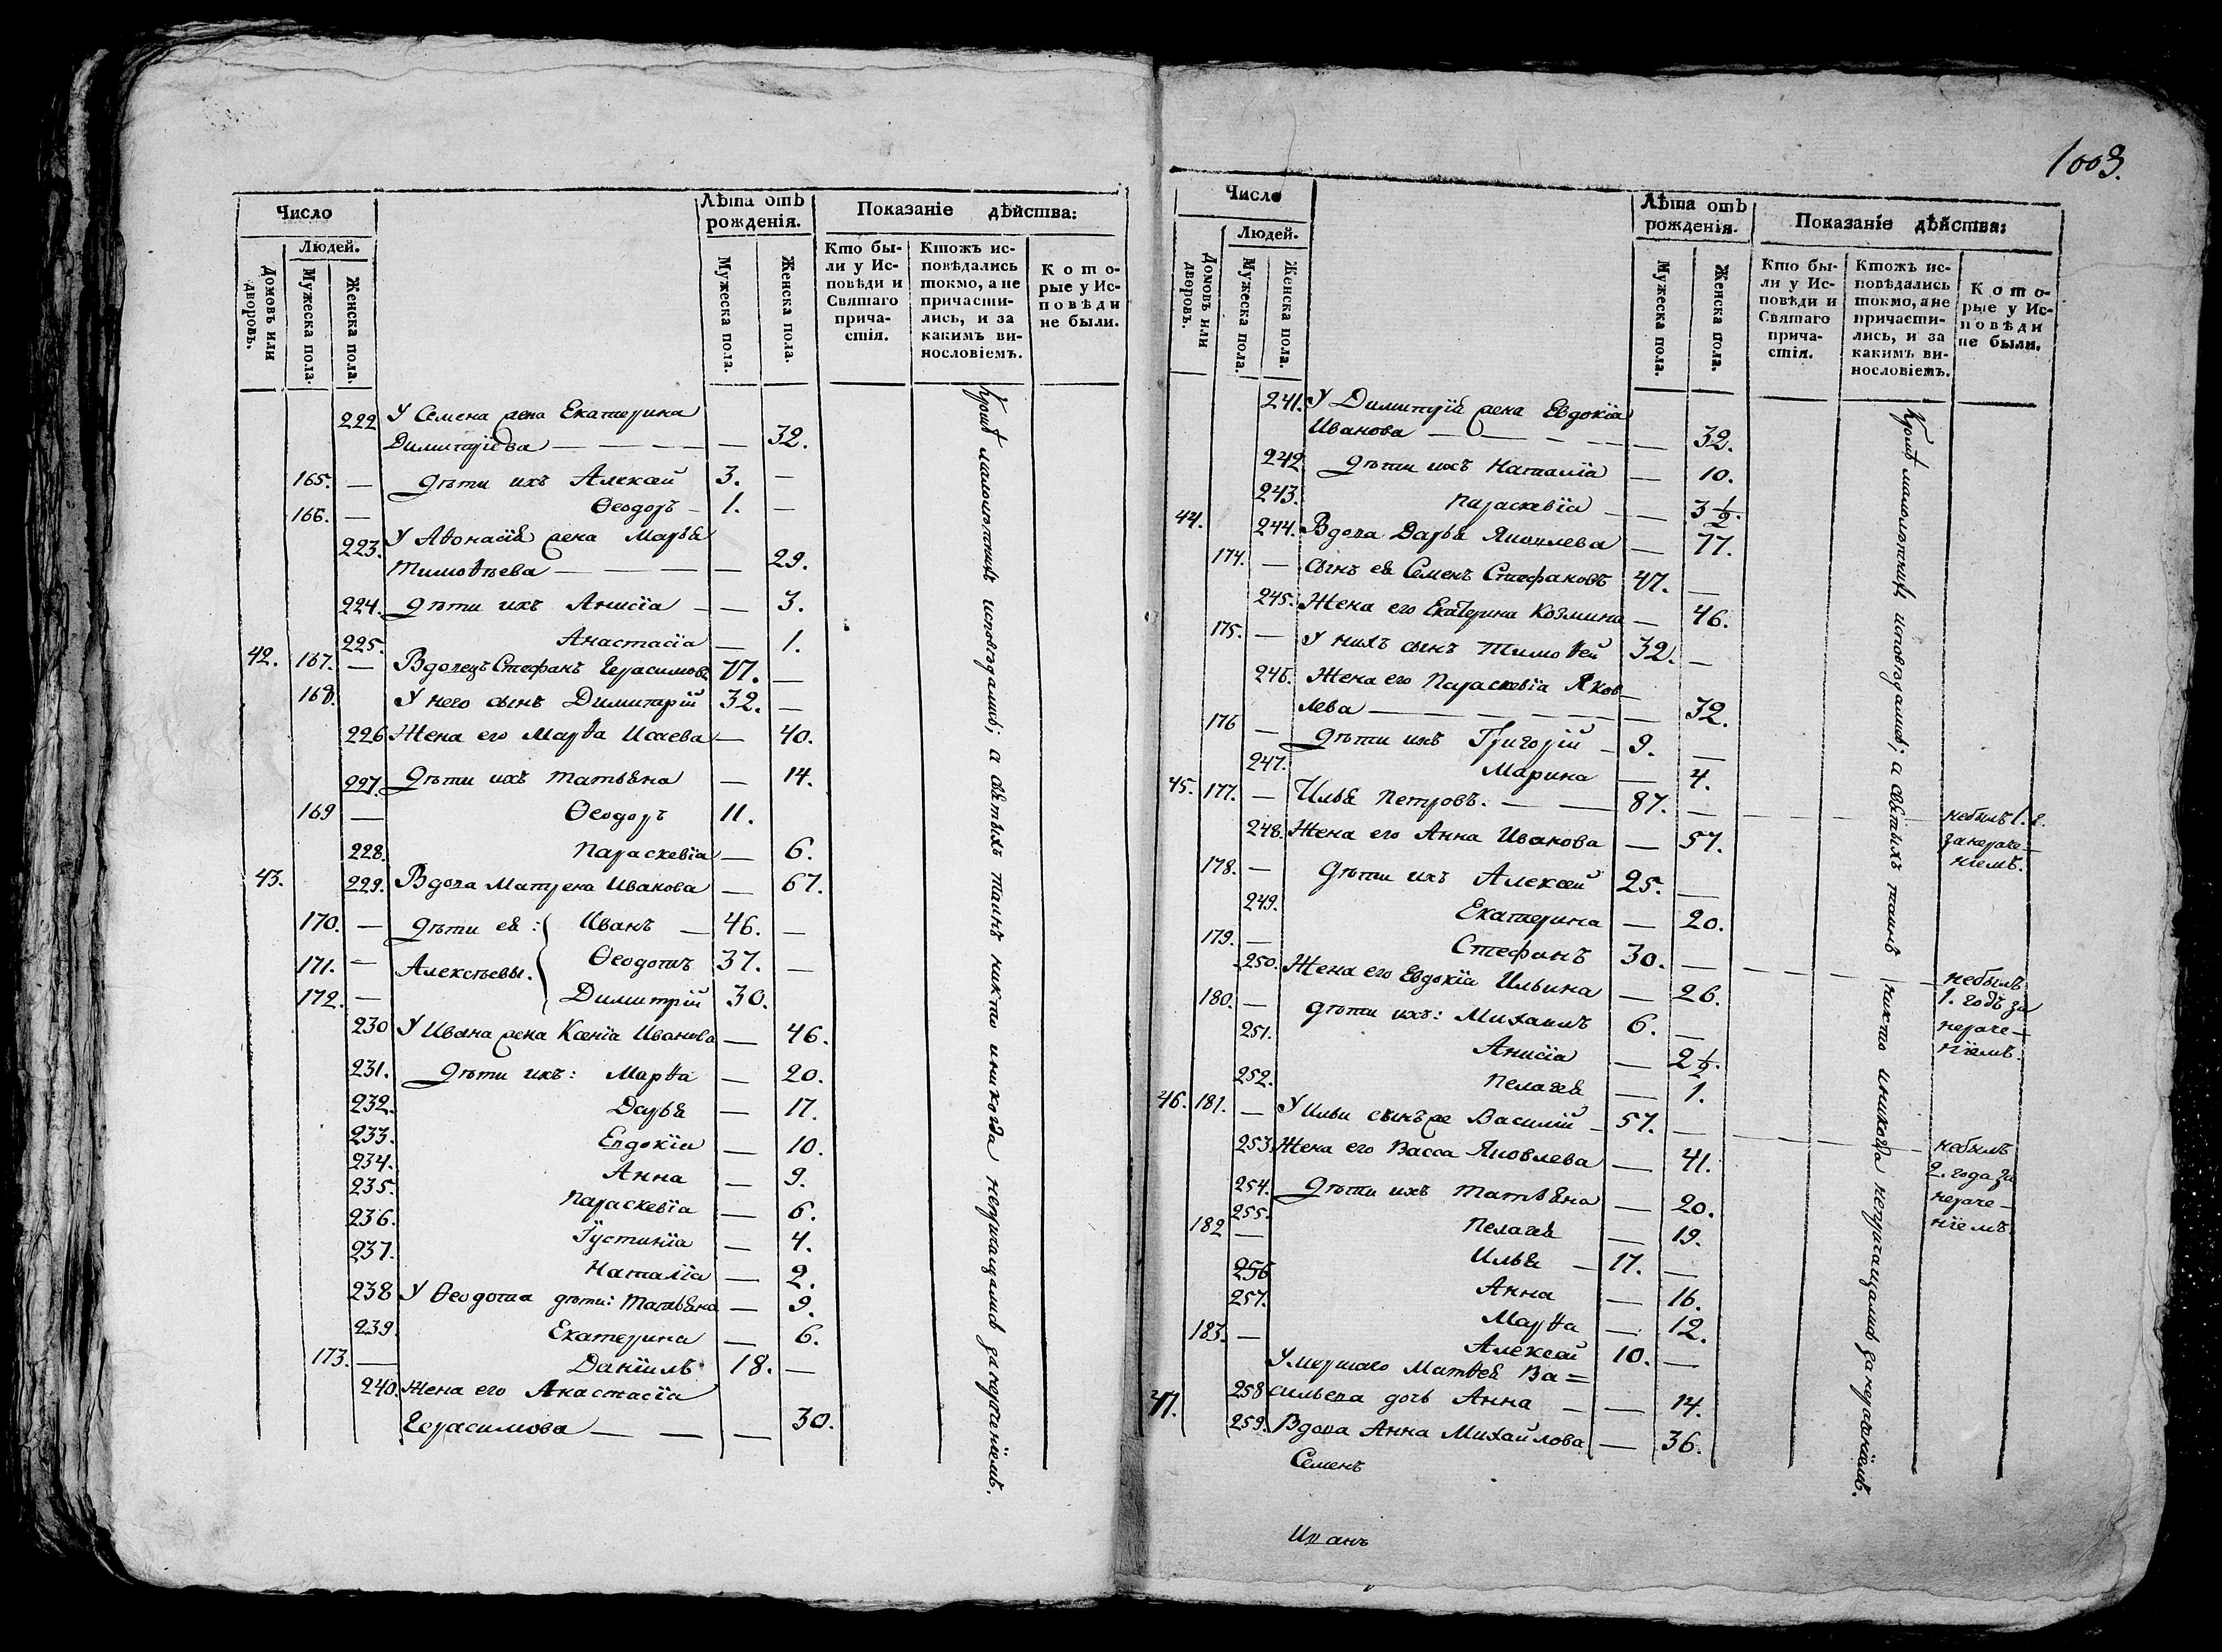 Число
Людей.
Домовъ или дворовъ.
Мужеска пола.
Женска пола.
Лѣта отъ рожденія.
Мужеска пола.
Женска пола.
Показаніе дѣйства:
Кто бы-
ли у Ис-
повѣди и
Святаго
прича-
стія.
Ктожъ ис-
повѣдались
токмо, а не
причасти-
лись, и за
какимъ ви-
нословіемъ.
Кото-
рые у Ис-
повѣди
не были.
222 У Семена жена Екатерина
Димитріева — 32.
165. — Дѣти ихъ Алексей 3. —
166. — Ѳеодоръ — 1. —
223. У Аѳонасія жена Марья
Тимоѳѣева — 29.
224. Дѣти ихъ Анисіа — 3.
225. Анастасіа — 1.
42. 167. — Вдовецъ Стефанъ Герасимовъ 77. —
168. У него сынъ Димитрій 32. —
226 Жена его Марѳа Исаева — 40.
227. Дѣти ихъ Татьяна — 14.
169 — Ѳеодоръ 11.
228. Параскевіа — 6.
43. 229. Вдова Матрена Иванова — 67.
170. — Дѣти ея: Иванъ — 46. —
171. — Алексѣевы. Ѳеодотъ 37. —
172. — Димитрій 30.
230 У Ивана жена Ксеніа Иванова — 46.
231. Дѣти ихъ: Марѳа — 20.
232. Дарья — 17.
233. Евдокіа — 10.
234. Анна — 9.
235. Параскевіа — 6.
236. Іустиніа — 4.
237. Наталіа — 2.
238 У Ѳеодота дѣти: Татьяна — 9.
239. Екатерина — 6.
173. — Даніилъ 18. —
240. Жена его Анастасіа
Герасимова — — — 30.
Кромѣ малолѣтнихъ исповѣдались; а святыхъ таинъ никто и никогда непричащались за нераченіемъ.
1003.
Число
Людей.
Домовъ или дворовъ.
Мужеска пола.
Женска пола.
Лѣта отъ рожденія.
Мужеска пола.
Женска пола.
Показаніе дѣйства:
Кто бы-
ли у Ис-
повѣди и
Святаго
прича-
стія.
Ктожъ ис-
повѣдались
токмо, а не
причасти-
лись, и за
какимъ ви-
нословіемъ.
Кото-
рые у Ис-
повѣди
не были.
241. У Димитрія жена Евдокіа
Иванова — 32.
242 Дѣти ихъ Наталіа — 10.
243. Параскевіа — 3½.
44. 244. Вдова Дарья Яковлева — 77.
174. — Сынъ ея Семенъ Стефановъ 47. —
245. Жена его Екатерина Козмина — 46.
175. — У нихъ сынъ Тимоѳей 32. —
246. Жена его Параскевіа Яков—
лева — 32.
176 — Дѣти ихъ Григорій — 9. —
247. Марина — 4.
45. 177. — Илья Петровъ. — 87. — небылъ 1. г.
за нераче—
ніемъ.
248. Жена его Анна Иванова — 57.
178. — Дѣти ихъ Алексей 25. —
249. Екатерина — 20.
179. — Стефанъ 30. — небылъ
1. годъ за
нераче—
ніемъ.
250. Жена его Евдокіа Ильина — 26.
180. — Дѣти ихъ: Михаилъ 6. —
251. Анисіа — 2½.
252. Пелагея — 1.
46. 181. — У Ильи сынъ же Василій — 57. — небылъ
2. года за
нераче—
ніемъ
253. Жена его Васса Яковлева — 41.
254. Дѣти ихъ Татьяна — 20.
255. Пелагея — 19.
182 — Илья — 17. —
256 Анна — 16.
257. Марѳа — 12.
183. — Алексей 10. —
Умершаго Матѳея Ва=
258 сильева дочь Анна — 14.
47. 259. Вдова Анна Михайлова — 36.
Семенъ
Иванъ
Кромѣ малолѣтнихъ исповѣдались; а святыхъ таинъ никто и никогда непричащались за нераченіемъ.